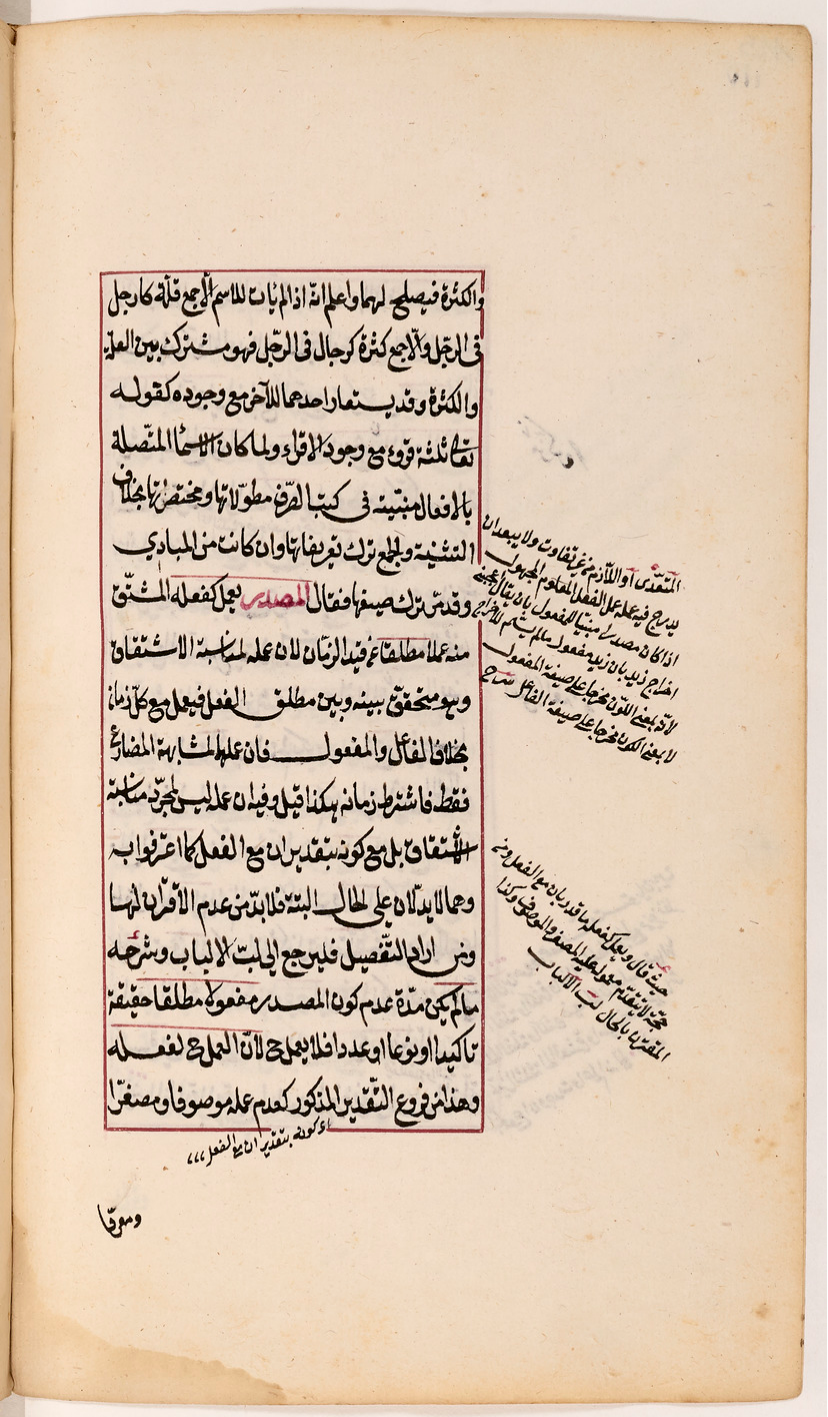 والكثرة فيصلح لهما واعلم انه اذا لم يأت للاسم الا جمع قلة كارجل
فى الرجل والا جمع كثرة كرجال فى الرجل فهو مشترك بين القلة
والكثرة وقد يستعار احدهما للآخر مع وجوده كقوله
تعالى ثلثة قروء مع وجود الاقراء ولما كان الاسماء المتصلة
بالافعال مبتنية فى كتب الصرف مطولاتها ومختصراتها بخلاف
التثنية والجمع ترك تعريفاتها وان كانت من المبادي
وقد مرّ ترك صيغها فقال المصدر يعمل كفعله المشتق
منه عملا مطلقا غير قيد الزمان لان عمله لمناسبة الاشتقاق
وهو متحقق بينه وبين مطلق الفعل فيعمل مع كل زمان
بخلاف الفاعل والمفعول فان عملهما لمشابهة المضارع
فقط فاشترط زمانه هكذا قيل وفيه ان عمله ليس لمجرد مناسبة
الاشتقاق بل مع كونه بتقدير ان مع الفعل كما اعترفوا به
وهما لا يدلان على الحال البتة فلا بدّ من عدم الاقتران لها
ومن اراد التفصيل فليرجع الى لب الالباب وشرحه
ما لم يكن مدة عدم كون المصدر مفعولا مطلقا حقيقة
تاكيدا او نوعا او عددا فلا يعمل ح لانّ العمل ح لفعله
وهذا من فروع التقدير المذكور كعدم عمله موصوفا ومصغرا
اى كونه بتقدير ان مع الفعل
ومعرفا
المتعدّى او اللازم من غير تفاوت ولا يبعد ان
يدرج فيه عمله عمل الفعل المعلوم المجهول
اذا كان مصدرا مبنيا للمفعول بان يقال اعجبنى
اخراج زيد بان زيد مفعول ما لم يسم للاخراج
لانه بمعنى اللون مخرجا على صيغة المفعول
لا بمعنى الكون مخرجا على صيغة الفاعل
حيث قال ويعمل كفعله ما قدر بان مع الفعل ومنه
ثمّة لا يتقدم معموله عليه المصغر والموصوف وكذا
المقترن بالحال لب الالباب